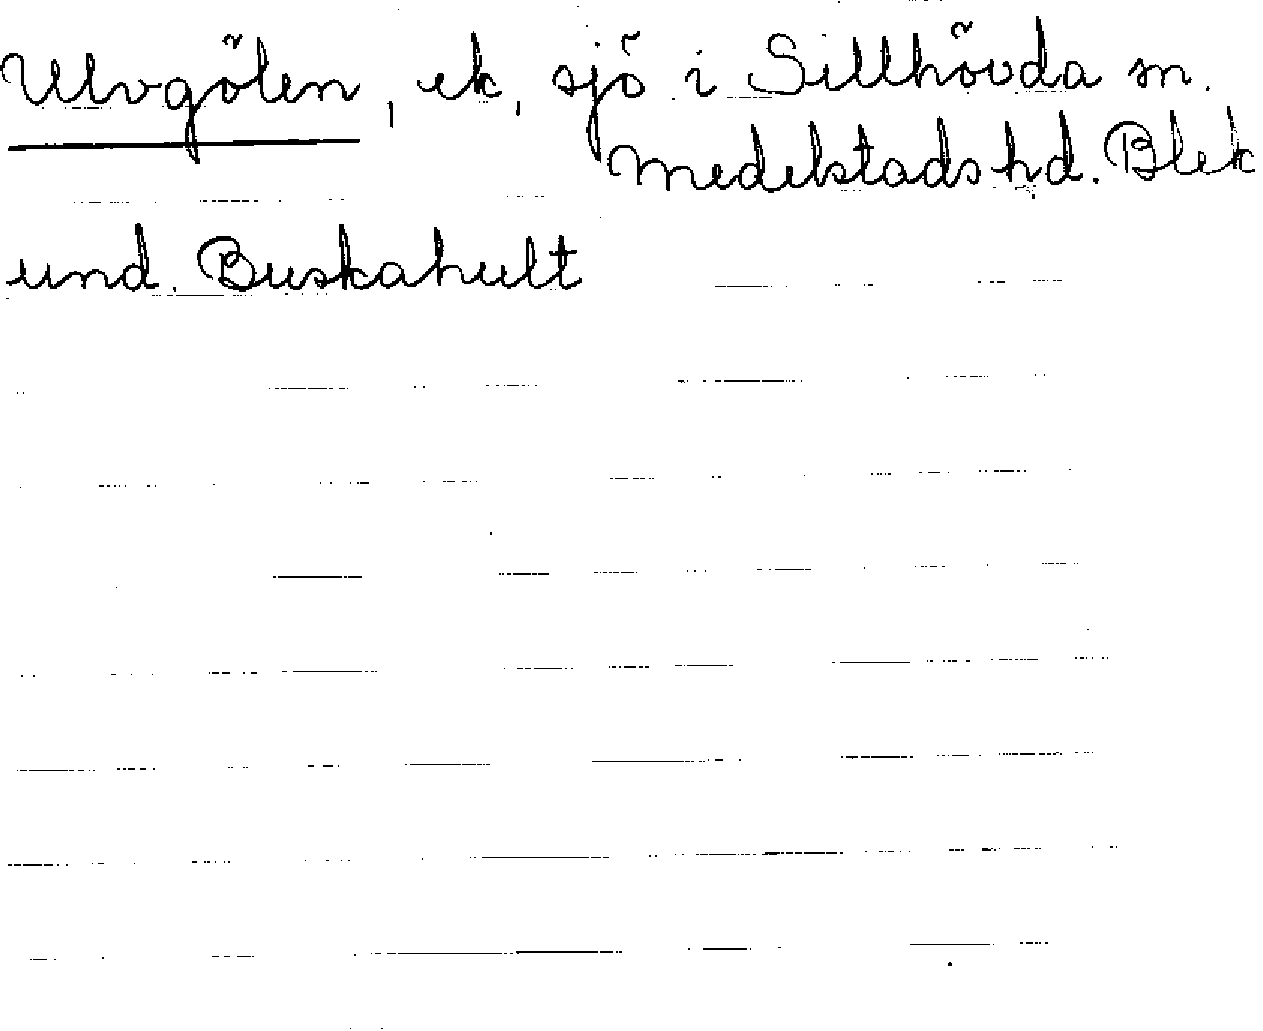 Ulvgölen, ek, sjö i Sillhövda sn.
Medelstads hd. Blek
und. Buskahult